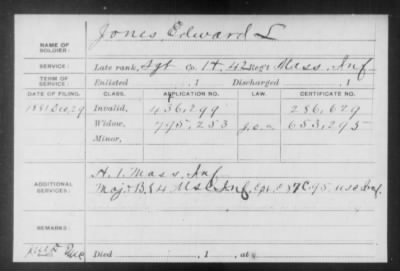 Jones, Edward L
NAME OF SOLDIER:
SERVICE: Late rank, Sgt Co. H, 42 Reg't Mass. Inf
TERM OF SERVICE: Enlisted , 1 Discharged , 1
DATE OF FILING. CLASS. APPLICATION NO. LAW. CERTIFICATE NO.
1881 Dec, 29 Invalid, 436,299 286,679
Widow, 795,253 653,295
Minor,
ADDITIONAL SERVICES: A. 1. Mass. Inf
Maj & B. 54 Mass Inf, Cpt. C
REMARKS:
Died , 1 , at